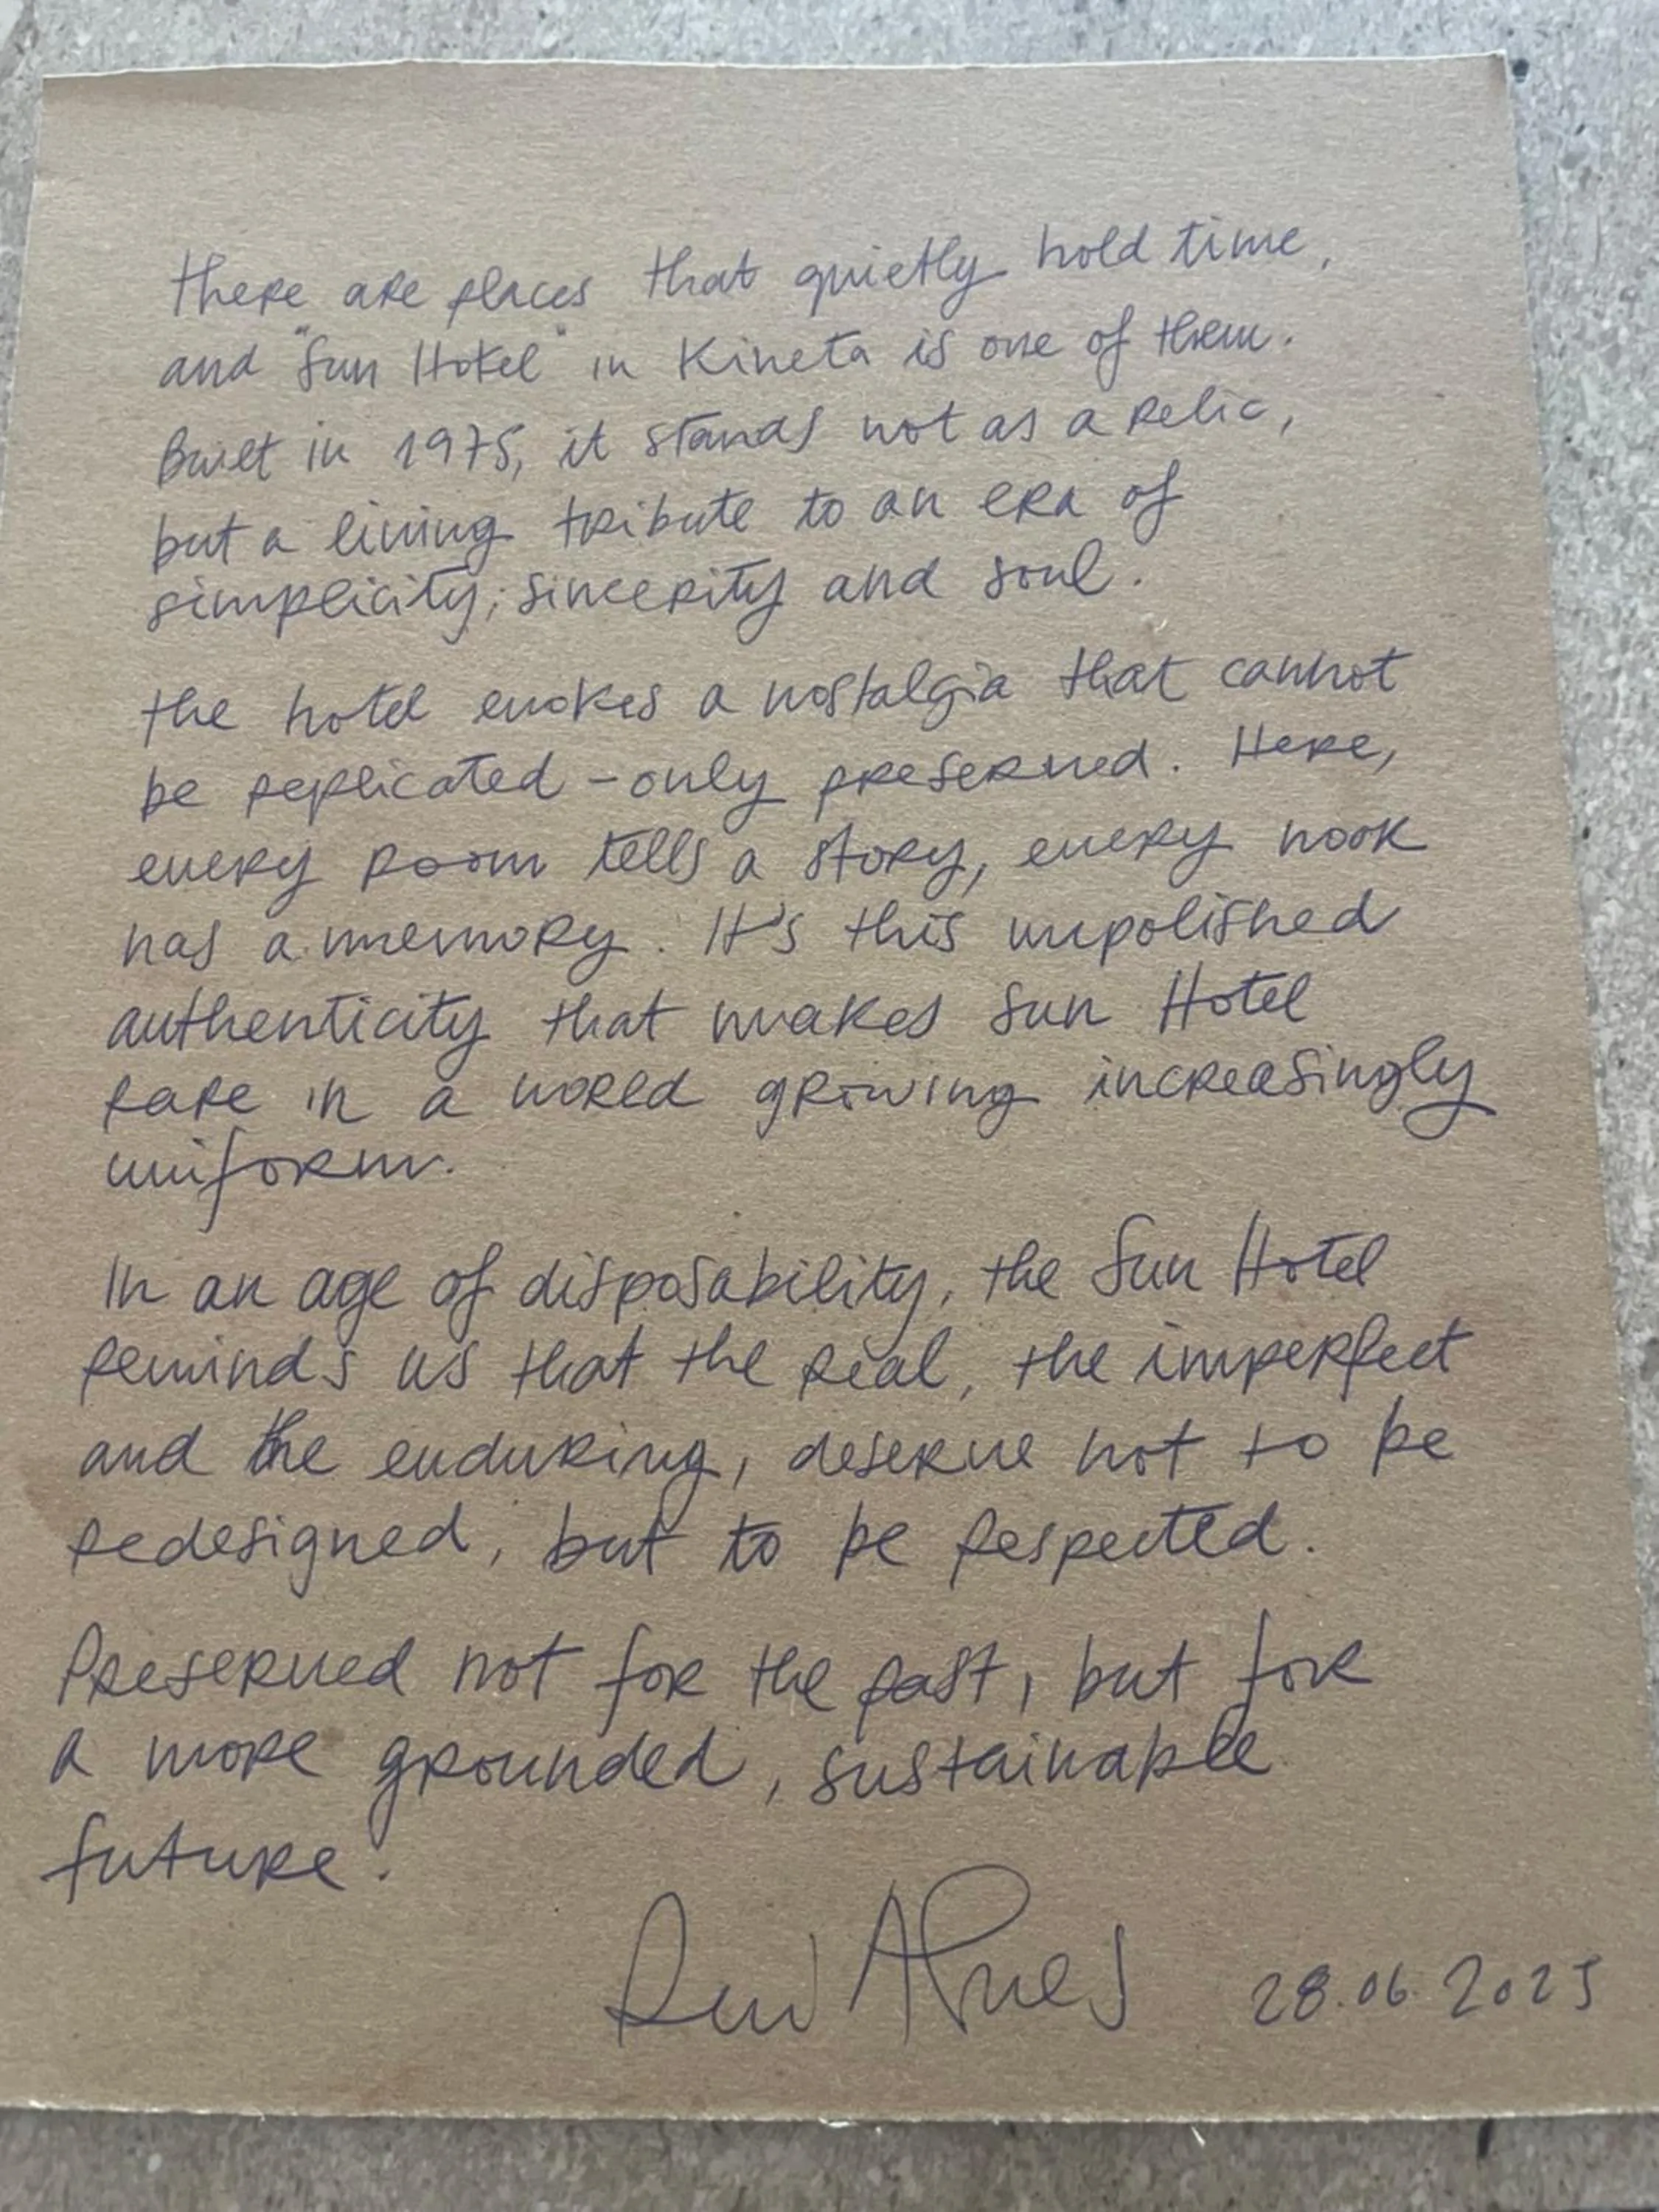 there are places that quietly hold time,
and "Sun Hotel" in Kineta is one of them.
Built in 1975, it stands not as a relic,
but a living tribute to an era of
simplicity, sincerity and soul.
the hotel evokes a nostalgia that cannot
be replicated - only preserved. Here,
every room tells a story, every nook
has a memory. It's this unpolished
authenticity that makes Sun Hotel
rare in a world growing increasingly
uniform.
In an age of disposability, the Sun Hotel
reminds us that the real, the imperfect
and the enduring, deserve not to be
redesigned, but to be respected.
Preserved not for the past, but for
a more grounded, sustainable
future.
28.06.2025